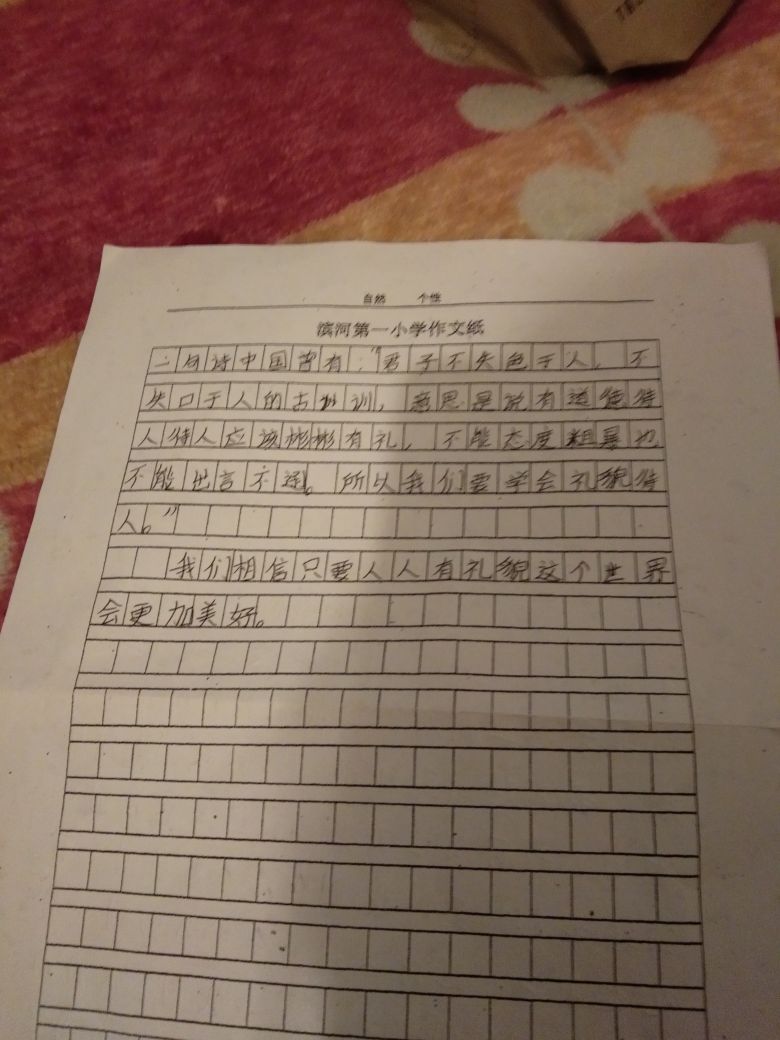 自然 个性
滨河第一小学作文纸
二句诗中国曾有:“君子不失色于人,不
失口于人的古训,意思是说有道德待
人待人应该彬彬有礼,不能态度粗暴也
不能出言不逊。所以我们要学会礼貌待
人。”
我们相信只要人人有礼貌这个世界
会更加美好。